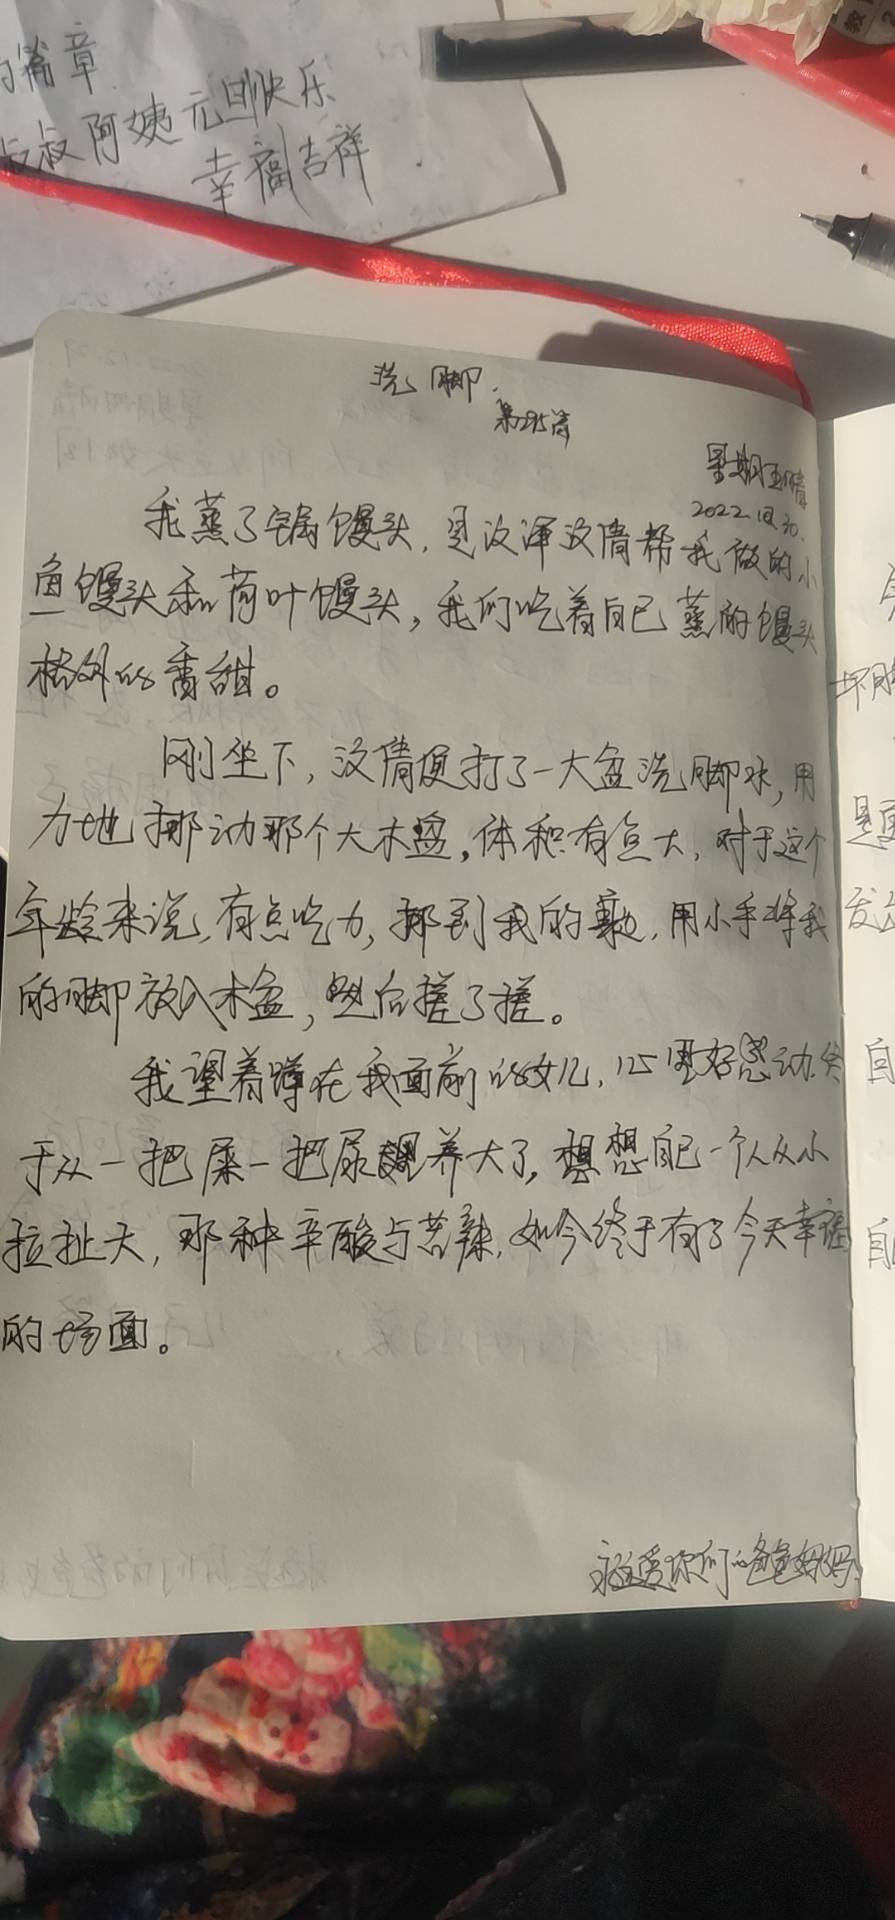 的篇章
叔叔阿姨元旦快乐
幸福吉祥
洗脚.
第295篇
星期五晴
2022.12.30.
我蒸了锅馒头,是汶渾汶倩帮我做的小
鱼馒头和荷叶馒头,我们吃着自己蒸的馒头
格外的香甜。
刚坐下,汶倩便打了一大盆洗脚水,用
力地挪动那个大木盆,体积有点大,对于这个
年龄来说,有点吃力,挪到我的旁边,用小手将我
的脚放入木盆,然后搓了搓。
我望着蹲在我面前的女儿,心里好感动,终
于从一把屎一把尿喂养大了,想想自己一个人从小
拉扯大,那种辛酸与苦辣,如今终于有了今天幸福
的场面。
永远爱你们的爸爸妈妈
自
自